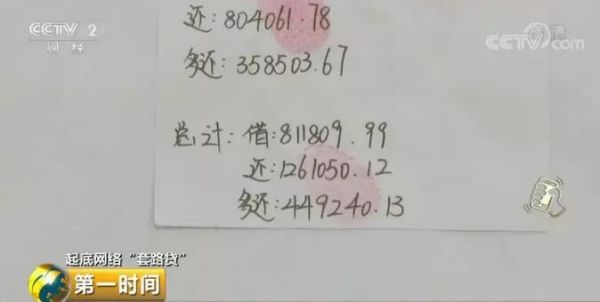 CCTV 2
财经
CCTV.com
还:804061.78
多还:358503.67
总计:借:811809.99
还:1261050.12
多还:449240.13
起底网络“套路贷”
第一时间